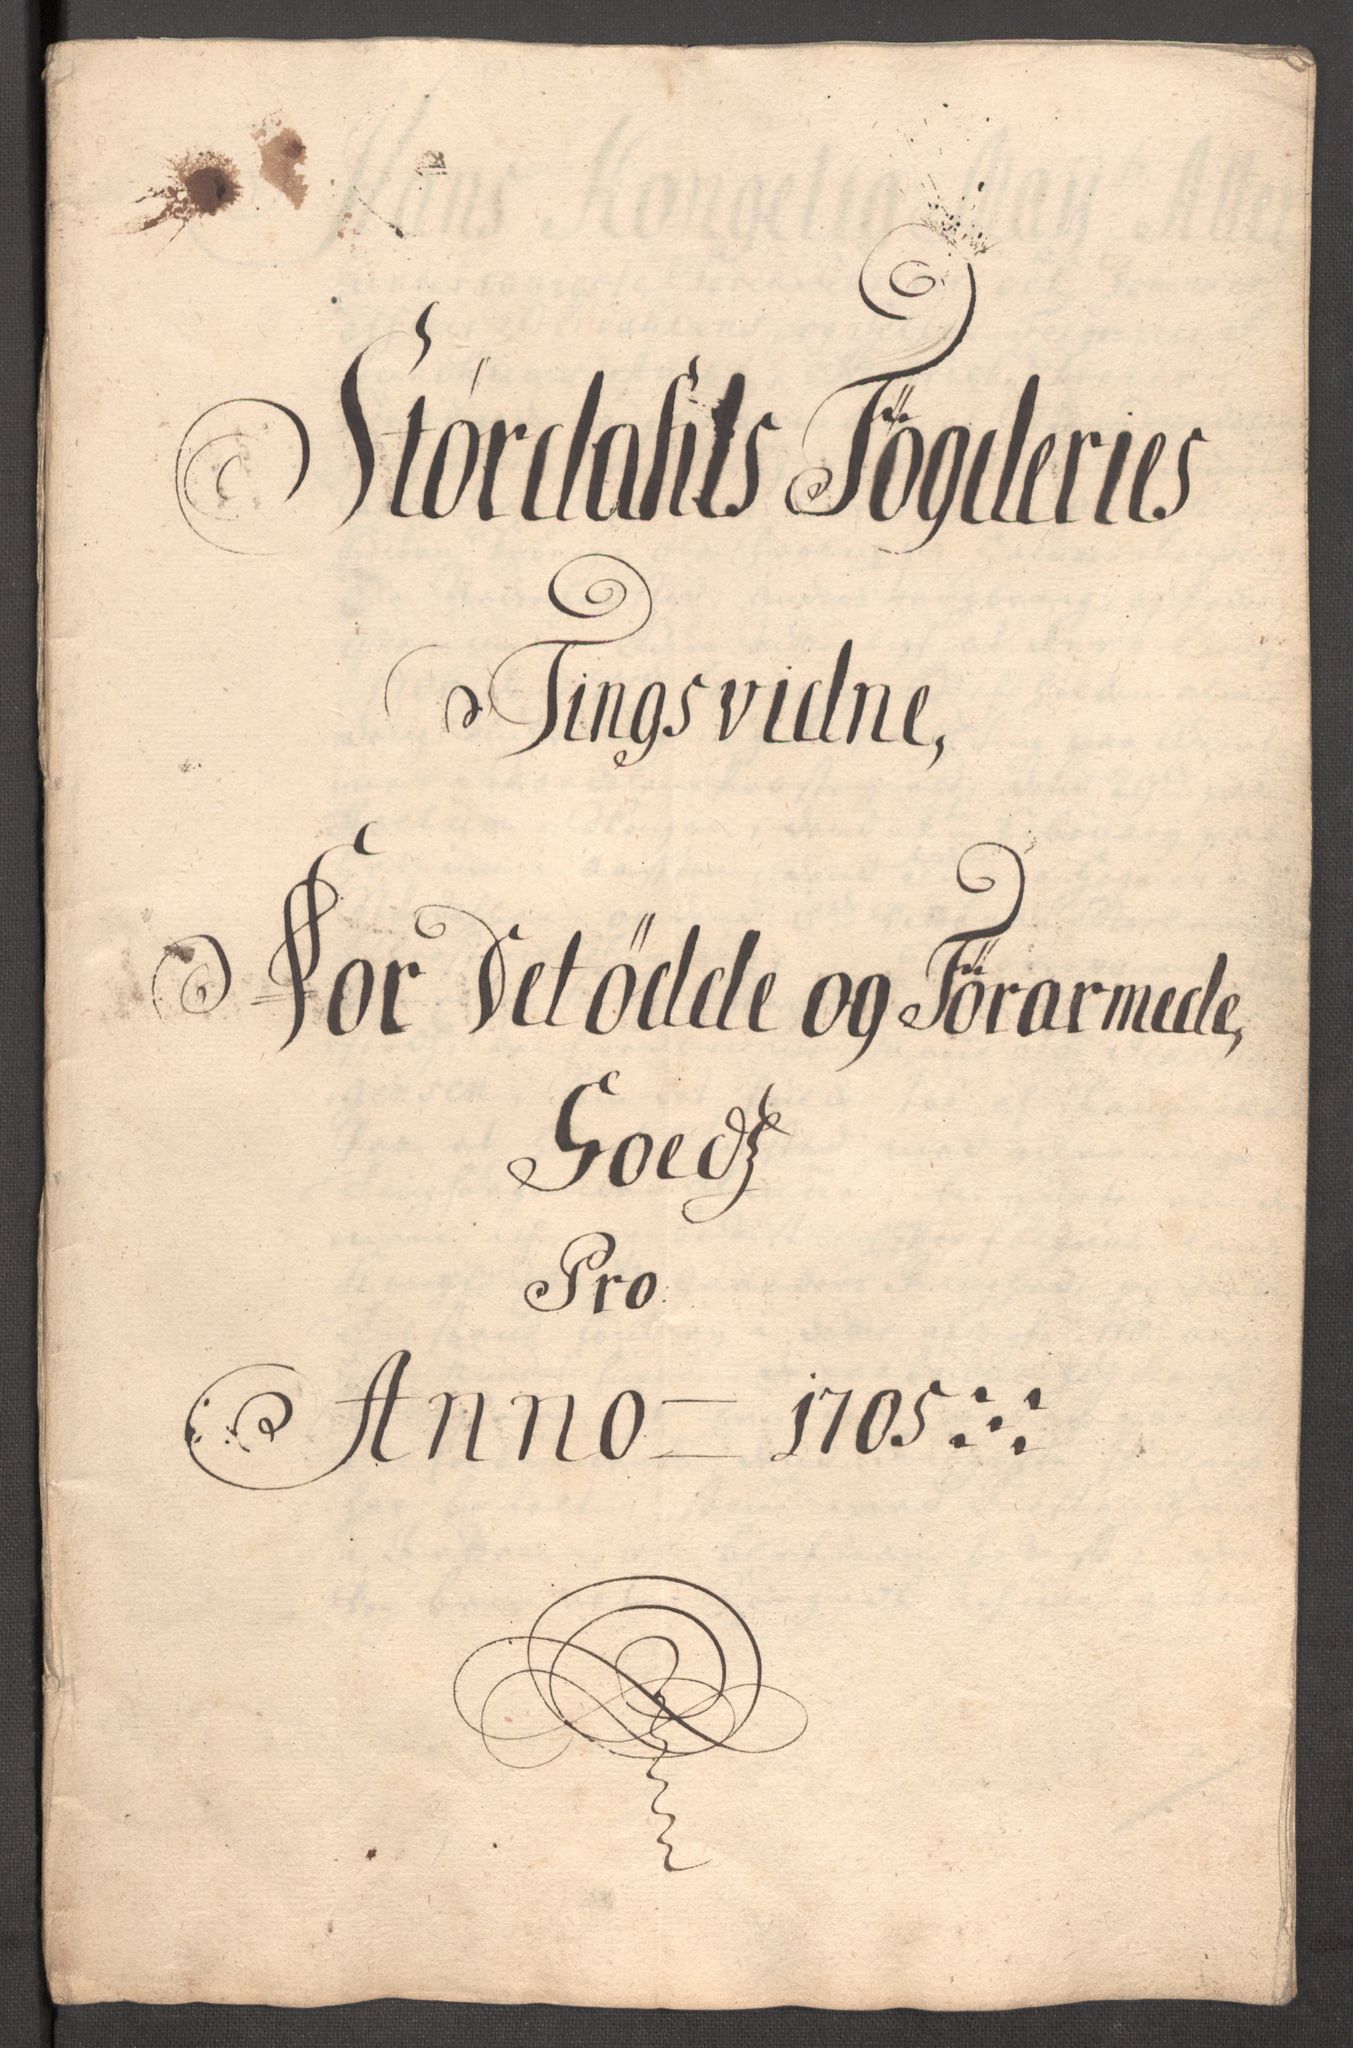 Stördahls Fögderies
Tingsvidne,
For Det ödde og Förarmede,
Goedz
Pro
Anno 1705